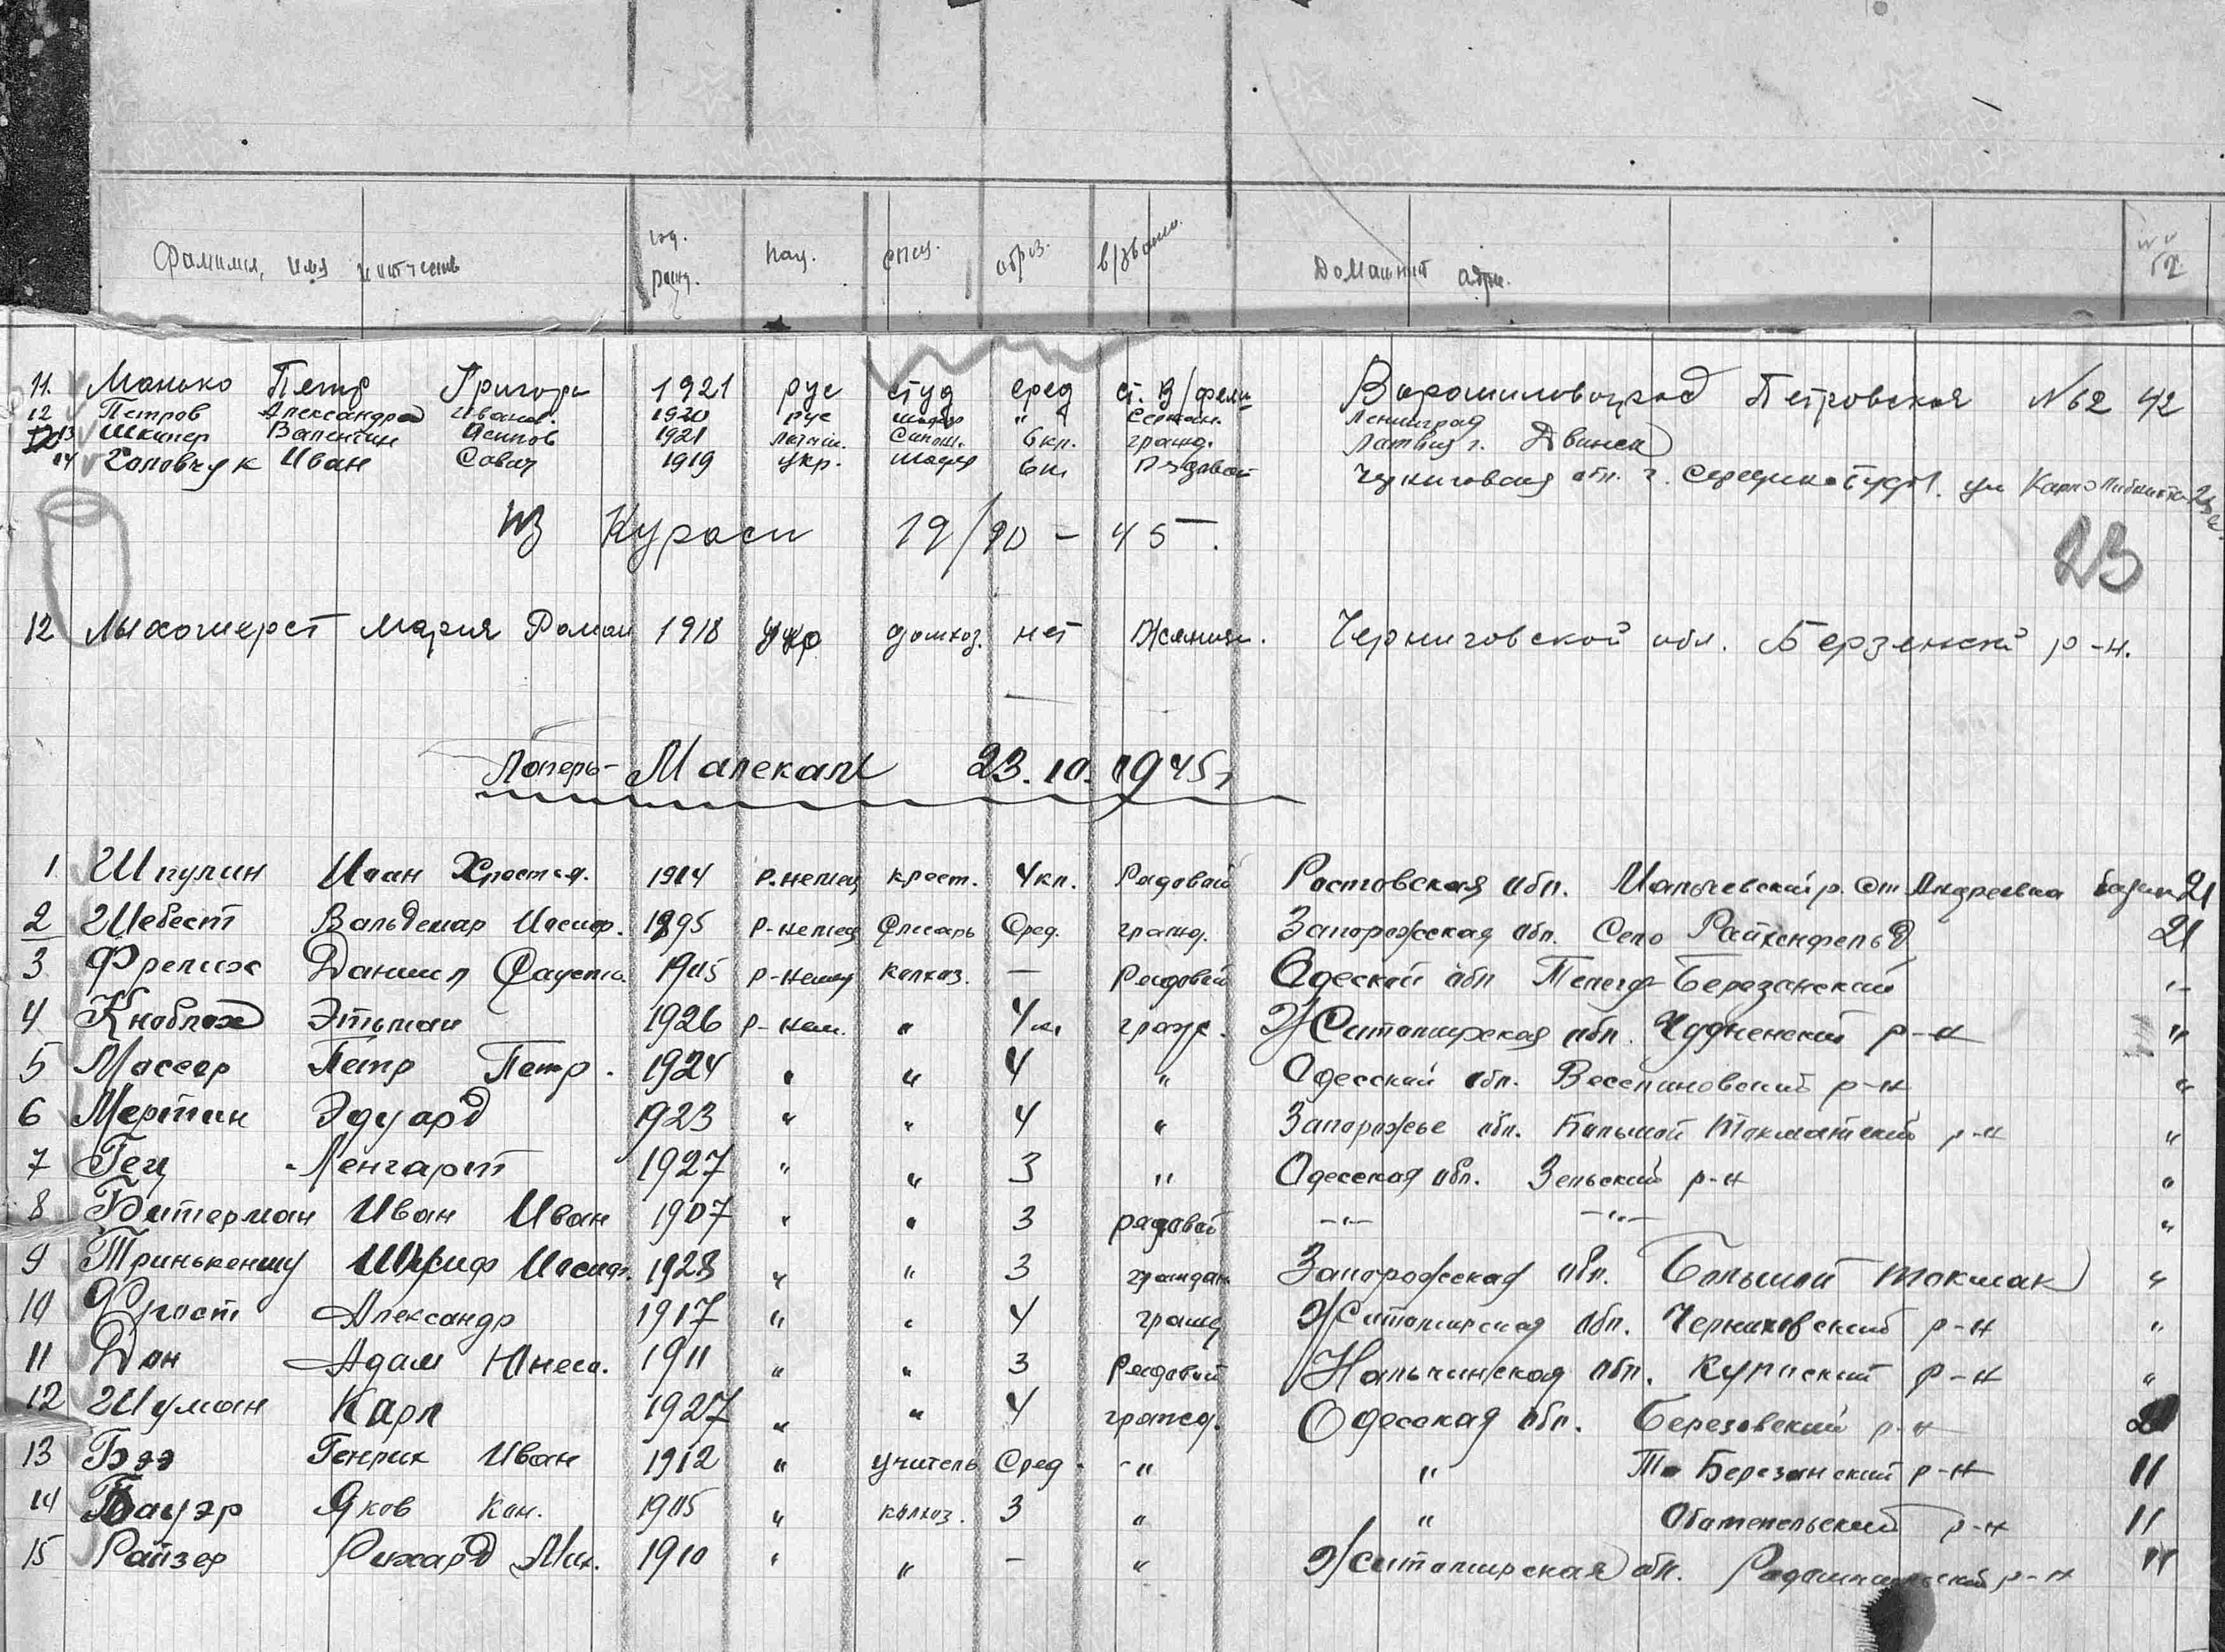 Фамилия, имя и отчество год. рожд. нац. спец. образ. в/звание Домашний адрес.
11. Манько Петр Григорь 1921 рус студ сред ст. В/фель Ворошиловоград Петровская №62 42
12 Петров Александр Иванов. 1920 рус " Сержан. Ленинград
13 Шкипер Валентин Осипов 1921 6кл. гражд. Латвия г. Двинск
14 Головчук Иван Савич 1919 укр. 6кл Рядовой Черниговская обл. г. ул Карла Либкнехта
из 19/10 - 45.
23
12 Лыхошерст Мария Роман 1918 укр домхоз. нет Черниговской обл. Берзенский р-н.
Лагерь- Малекам 23.10.1945г
1 Шпулин Иван Христиа. 1914 Р.немец крест. 4кл. Рядовой Ростовская обл. р. Андреевка 21
2 Шебест Вальдемар Иосиф. 1895 Р-немец Слесарь Сред. гражд. Запорожская обл. Село Райхенфельд 21
3 Фрелих Даниил 1905 Р-немец колхоз. — Рядовой Одеской обл Телиг-Березанский "-
4 Кноблох Этьман 1926 Р-нем. " 4кл гражд. Житомирская обл. Чудненский р-н "
5 Массер Петр Петр. 1924 " " 4 " Одесский обл. Веселиновский р-н "
6 Мертин Эдуард 1923 " " 4 " Запорожье обл. Большой Токматский р-н "
7 Гец Ленгарт 1927 " " 3 " Одесская обл. Зельский р-н "
8 Битерман Иван Иван 1907 " " 3 рядовой -"- -"- "
9 Тринькеншу Иосиф. 1928 " " 3 граждан Запорожская обл. Большой Токмак "
10 Фрост Александр 1917 " " 4 гражд Житомирская обл. Черняховский р-н "
11 Дон Адам 1911 " " 3 Рядовой Нальчинская обл. Курпский р-н "
12 Шуман Карл 1927 " " 4 гражд. Одесская обл. Березовский р-н 21
13 Бээ Генрих Иван 1912 " учитель Сред. -" " Т. Березанский р-н "
14 Бауэр Яков Кон. 1905 " колхоз. 3 " " р-н "
15 Райзер Рихард Мих. 1910 " " — " Житомирская обл. р-н "